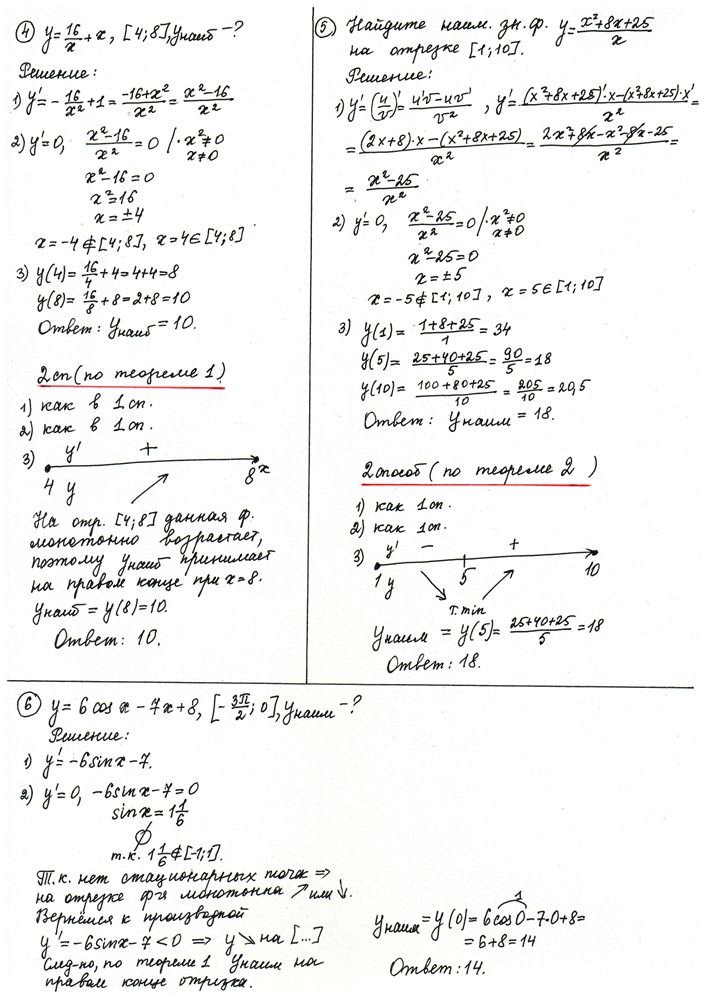 ④ y = 16/x + x, [4;8], yнаиб - ?
Решение:
1) y' = -16/x² + 1 = (-16+x²)/x² = (x²-16)/x²
2) y'=0, (x²-16)/x² = 0 /·x²≠0
x≠0
x²-16=0
x²=16
x=±4
x=-4∉[4;8], x=4∈[4;8]
3) y(4)= 16/4 +4=4+4=8
y(8)= 16/8 +8=2+8=10
Ответ: yнаиб=10.
2сп(по теореме 1)
1) как в 1сп.
2) как в 1сп.
3) y' +
4 8 x
y ↗
На отр. [4;8] данная ф.
монотонно возрастает,
поэтому yнаиб принимает
на правом конце при x=8.
yнаиб = y(8)=10.
Ответ: 10.
⑤ Найдите наим. зн. ф. y= (x²+8x+25)/x
на отрезке [1;10].
Решение:
1) y'=(u/v)'= (u'v-uv')/v² , y'= ((x²+8x+25)'·x-(x²+8x+25)·x')/x² =
= ((2x+8)·x-(x²+8x+25))/x² = (2x²+8x-x²-8x-25)/x² =
= (x²-25)/x²
2) y'=0, (x²-25)/x² =0 /·x²≠0
x≠0
x²-25=0
x=±5
x=-5∉[1;10], x=5∈[1;10]
3) y(1)= (1+8+25)/1 = 34
y(5)= (25+40+25)/5 = 90/5 =18
y(10)= (100+80+25)/10 = 205/10 =20,5
Ответ: yнаим = 18.
2способ(по теореме 2 )
1) как 1сп.
2) как 1сп.
3) y' - +
1 5 10
y ↘ ↗
т.min
yнаим = y(5)= (25+40+25)/5 =18
Ответ: 18.
⑥ y=6cosx-7x+8, [-3π/2; 0], yнаим - ?
Решение:
1) y'=-6sinx-7.
2) y'=0, -6sinx-7=0
sinx=1 1/6
∅
т.к. 1 1/6∉[-1;1].
Т.к. нет стационарных точек ⇒
на отрезке ф-я монотонна ↗ или ↘.
Вернёмся к производной
y'=-6sinx-7<0 ⇒ y↘ на [...]
След-но, по теореме 1 yнаим на
правом конце отрезка.
1
yнаим=y(0)=6cos0-7·0+8=
=6+8=14
Ответ:14.